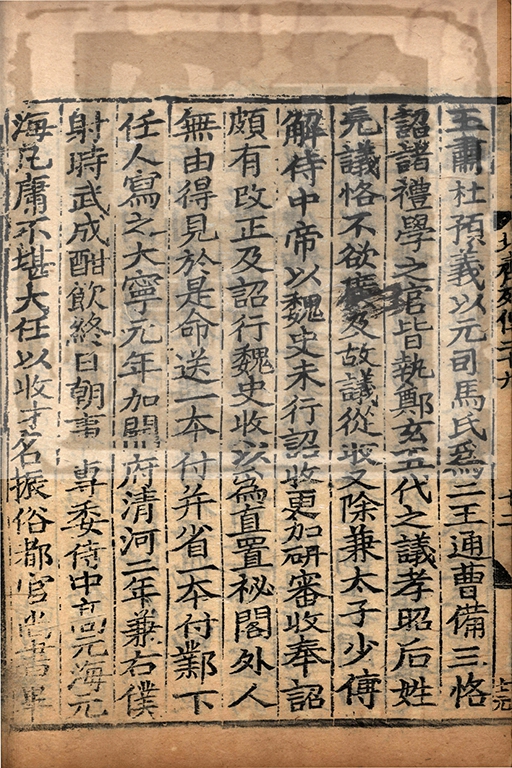 王肅杜預義以元司馬氏爲二王通曹備三恪
詔諸禮學之官皆執鄭玄五代之議孝昭后姓
元議恪不欲廣及故議從收又除兼太子少傅
解侍中帝以魏史未行詔收更加研審收奉詔
頗有改正及詔行魏史收以爲直置祕閣外人
無由得見於是命送一本付并省一本付鄴下
任人寫之大寧元年加開府清河二年兼右僕
射時武成酣飲終日朝事專委侍中高元海元
海凡庸不堪大任以收才名振俗都官尚書畢
北齊列傳二十九
十二